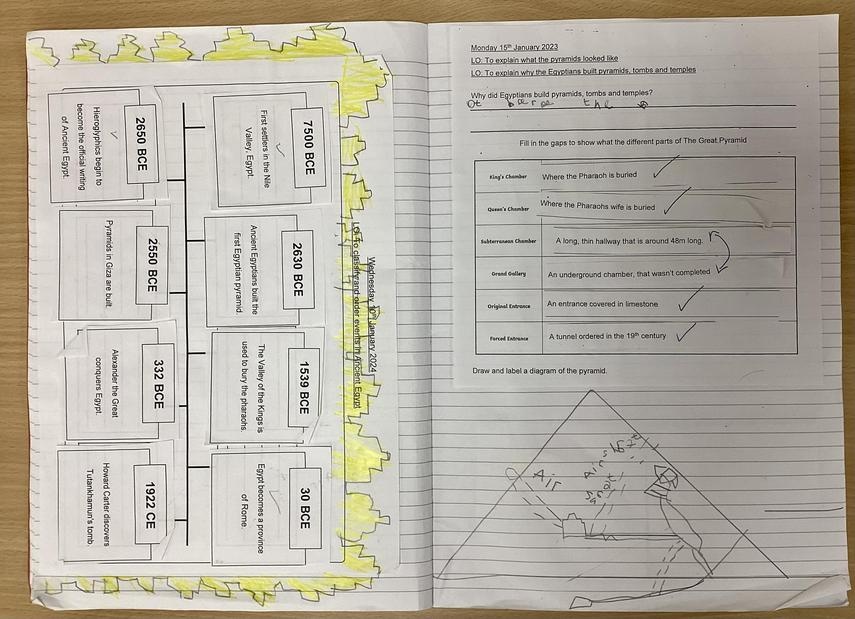 Wednesday 10th January 2024
LO: To classify and order events in Ancient Egypt
7500 BCE
First settlers in the Nile
Valley, Egypt.
2650 BCE
Hieroglyphics begin to
become the official writing
of Ancient Egypt.
2630 BCE
Ancient Egyptians built the
first Egyptian pyramid.
2550 BCE
Pyramids in Giza are built.
1539 BCE
The Valley of the Kings is
used to bury the pharaohs.
332 BCE
Alexander the Great
conquers Egypt.
30 BCE
Egypt becomes a province
of Rome.
1922 CE
Howard Carter discovers
Tutankhamun's tomb.
Monday 15th January 2023
LO: To explain what the pyramids looked like
LO: To explain why the Egyptians built pyramids, tombs and temples
Why did Egyptians build pyramids, tombs and temples?
the
Fill in the gaps to show what the different parts of The Great Pyramid
King's Chamber Where the Pharaoh is buried
Queen's Chamber Where the Pharaohs wife is buried
Subterranean Chamber A long, thin hallway that is around 48m long.
Grand Gallery An underground chamber, that wasn't completed
Original Entrance An entrance covered in limestone
Forced Entrance A tunnel ordered in the 19th century
Draw and label a diagram of the pyramid.
Air
Air